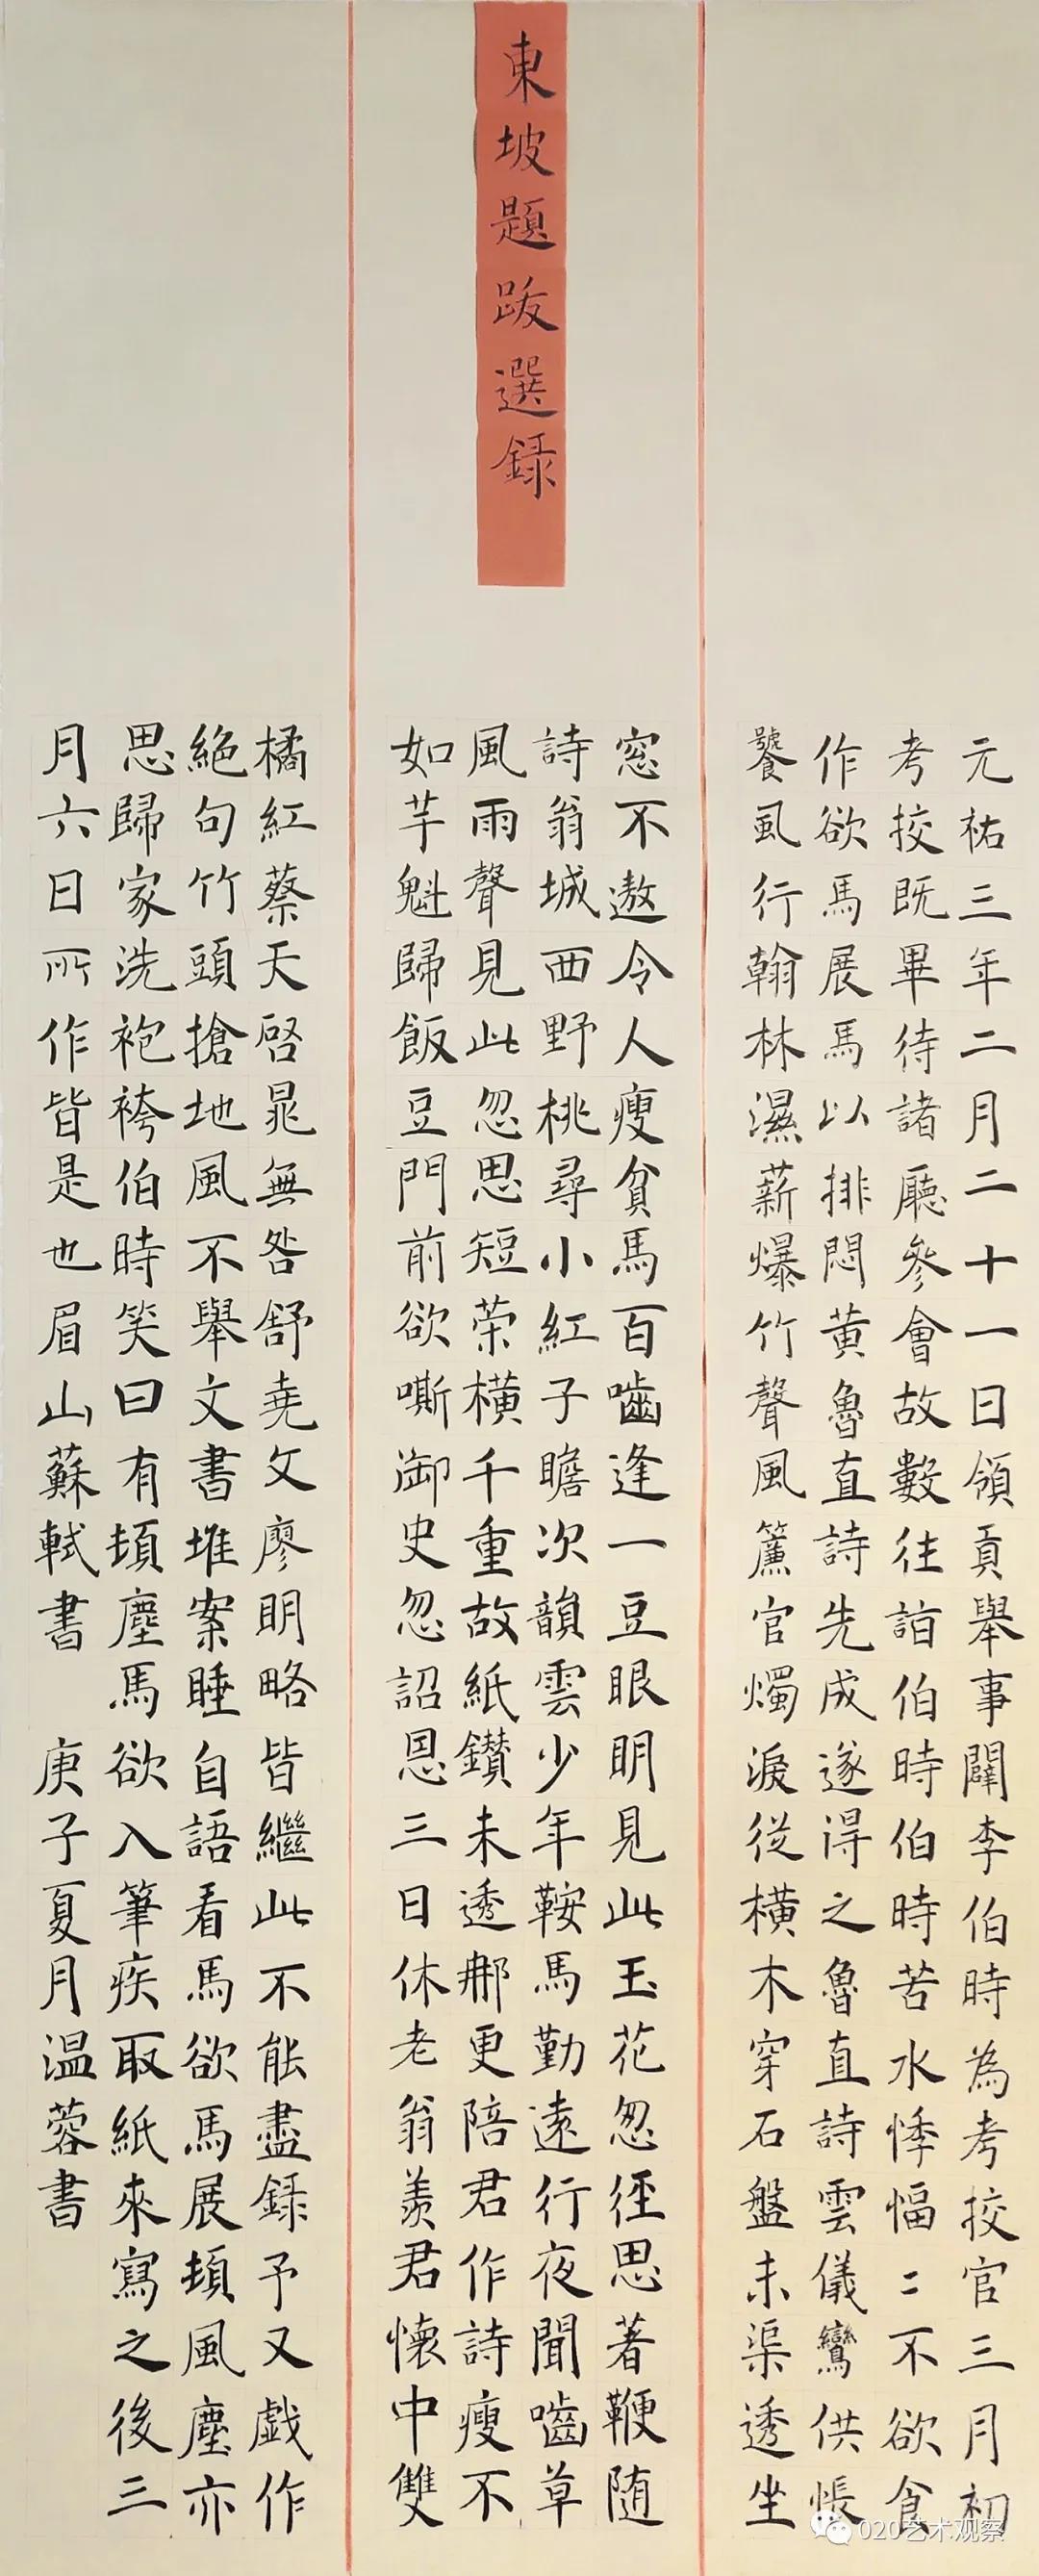 東坡題跋選録
元祐三年二月二十一日領貢舉事闢李伯時為考挍官三月初
考挍既畢待諸廳參會故數往詣伯時伯時苦水悸愊〻不欲食
作欲馬展馬以排悶黃魯直詩先成遂得之魯直詩雲儀鸞供帳
饕虱行翰林濕薪爆竹聲風簾官燭淚從橫木穿石盤未渠透坐
窓不遨令人瘦貧馬百嚙逢一豆眼明見此玉花忽徑思著鞭随
詩翁城西野桃尋小紅子瞻次韻雲少年鞍馬勤遠行夜聞嚙草
風雨聲見此忽思短荣橫千重故紙鑽未透那更陪君作詩瘦不
如芋魁歸飯豆門前欲嘶御史忽詔恩三日休老翁羨君懷中雙
橘紅蔡天啓晁無咎舒堯文廖明略皆繼此不能盡録予又戯作
絶句竹頭搶地風不舉文書堆案睡自語看馬欲馬展頓風塵亦
思歸家洗袍袴伯時笑曰有頓塵馬欲入筆疾取紙來寫之後三
月六日所作皆是也眉山蘇軾書 庚子夏月温蓉書
020艺术观察